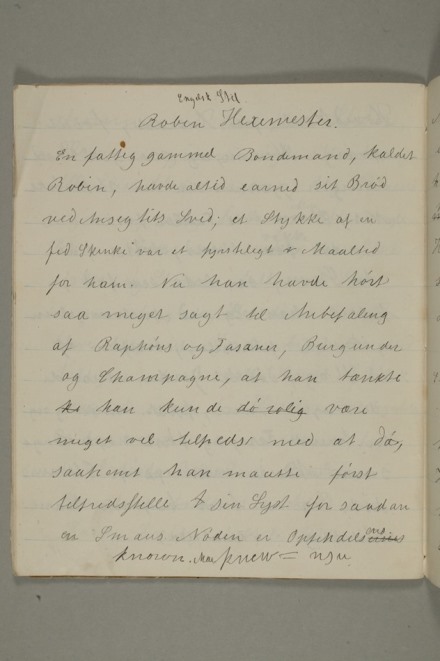 Engelsk Stil.
Robin Hexemester.
En fattig gammel Bondemand, kaldet
Robin, havde altid earned sit Brød
ved Ansegtits Sved; et Stykke af en
fed Skinke var et fyrsteligt Maaltid
for ham. Nu han havde hört
saa meget sagt til Anbefaling
af Raphöns og Fasaner, Burgunder
og Champagne, at han tænkte
han kunde dö rolig være
meget vel tilfreds med at dö,
saafremt han maatte först
tilfredsstille sin Lyst for saadan
en Smaus Nöden er Opfindels
known. knew = nyu.